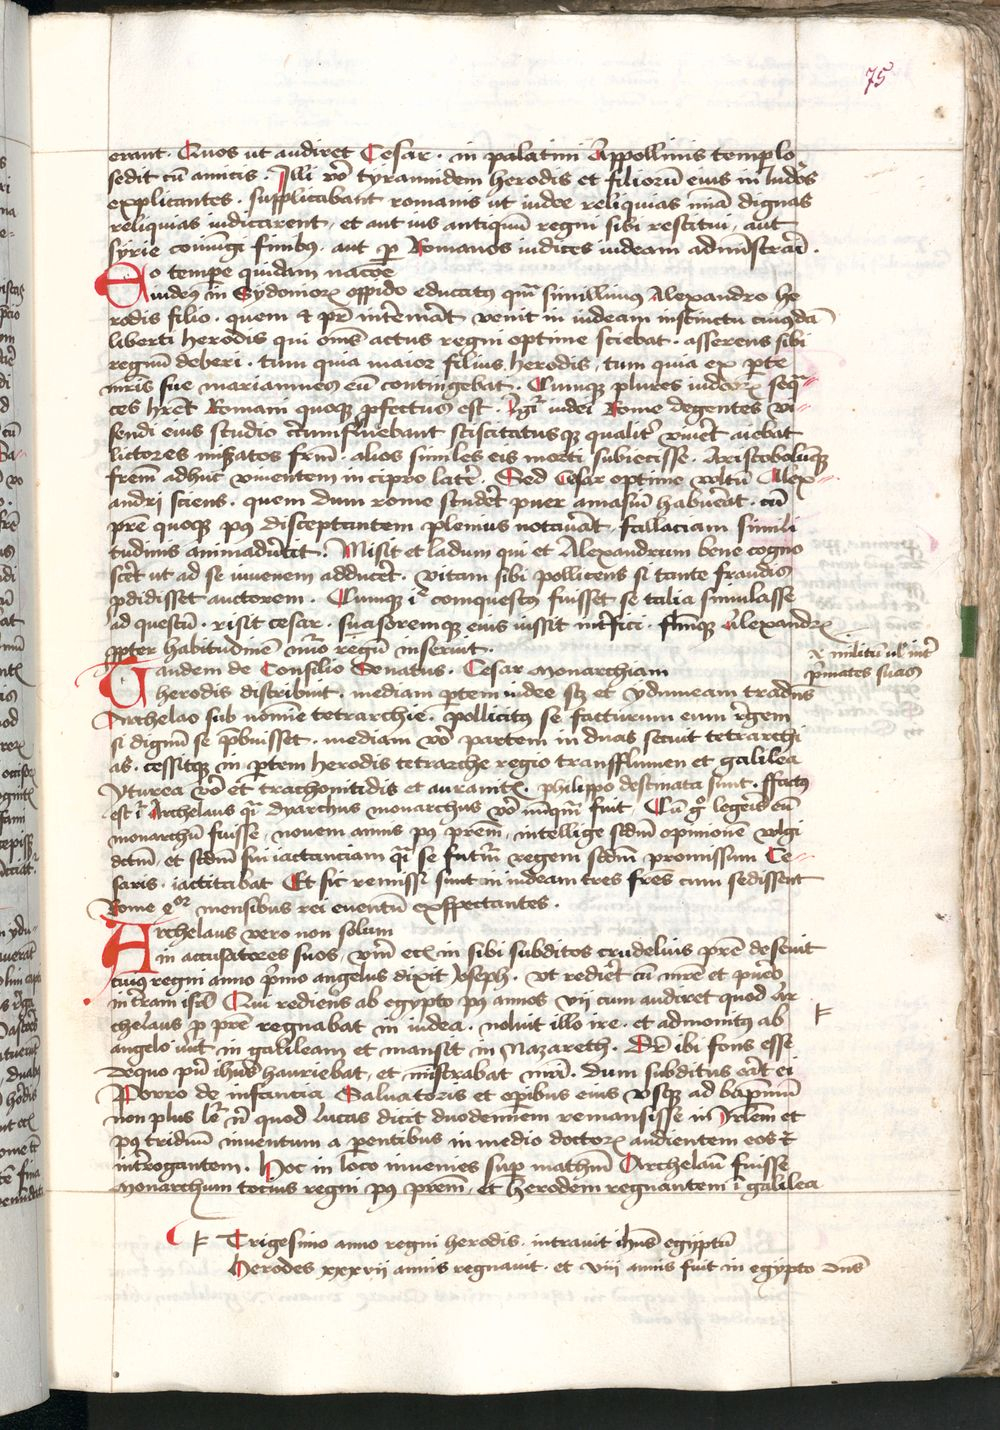 75
erant. Quos ut audiret Cesar. in palatini Appollinis templo
sedit cū amicis. Illi vō tyrannidem herodis et filiorū eius in iudeos
explicantes. supplicabant romanis ut iudee reliquias mīa dignas
reliquias iudicarent, et aut ius antiquū regni sibi restitui, aut
syrie coniūgi finibꝰ, aut ꝑ Romanos iudices iudeam administrari
Eo tempe quidam nacōe
iudeꝰ in Sydonioꝝ oppido educatꝰ qm̄ simillimꝰ Alexandro he
rodis filio. quem et pr̄ intemāt venit in iudeam instinctu cuiusdā
liberti herodis qui om̄s actus regni optime sciebat. asserens sibi
regnū deberi. tum quia maior filius herodis, tum quia ex ꝑte
mr̄is sue mariamnes eū contingebat. Cumqꝫ plures iudeoꝝ seq̄
ces hr̄et Romam quoqꝫ ꝓfectus est. Igr̄ iudei Rome degentes vi
sendi eius studio circumfluebant sciscitatusqꝫ qualitʳ viuēt aiebat
lictores missatos frm̄. alios similes eis morti subiecisse. Aristobolūqꝫ
frem̄ adhuc viuentem in cipro latēʳ. Sed Cesar optime vultū Alex
andri sciens. quem dum rome studēt puer amasiū habuerat. cū
prē quoqꝫ pꝰ disceptantem plenius notauāt, fallaciam simili
tudinis animaduertit. Misit et ladum qui et Alexandrum bene cogno
scēt ut ad se iuuenem adducēt. vitam sibi pollicens si tante fraudis
ꝓdidisset auctorem. Cumqꝫ iʳ conquestꝰ fuisset se talia simulasse
ad questū. risit cesar. suasoremqꝫ eius iussit int̄fici. ipsumqꝫ Alexandrꝝ
ꝓpter habitudinē nūo regiū inseruit.
ꝛ militū ul' int̄
primates suos
Tandem de Consilio Senatus. Cesar Monarchiam
herodis distribuit. mediam ꝑtem iudee sꝫ et ydumeam tradiūs
Archelao sub nomīe tetrarchie. pollicitꝰ se facturum eum rēgem
si dignū se p̄buisset. mediam vō partem in duas secuit tetrarchi
as. cessitqꝫ in ꝑtem herodis tetrarche regio transfflumen et galilea
yturea vō et trachonitidis et auranitꝝ. philippo destinata sunt. ffactꝰ
est iʳ Archelaus qr̄ dyarchus monarchus vō nūqm̄ fuit. Cū gͦ legeris eū
monarchū fuisse, nouem annis pꝰ prem̄, intellige sedm̄ opinionē vulgi
dictū, et sedm̄ sui iactanciam qr̄ se futurū regem sedm̄ promissum Ce
saris. iactitabat Et sic remissi sunt in iudeam tres fres̄ cum sedissent
Rome qͦꝛ mensibus rei euentū exspectantes.
Archelaus vero non solum
in accusatores suos, vm̄ ecī in sibi subditos crudelius prē deseuit
cuius regni anno p̄mo angelus dixit Joseph. vt rediēt cū mr̄e et puero
in terram isrl̄ Qui rediens ab egypto pꝰ annos vii cum audiret quod Ar
chelaus ꝓ prē regnabat in iudea. noluit illo ire. et admonitꝰ ab
angelo iuit in galileam et mansit in Nazareth. Dr̄ ibi fons esse
de quo puer ihus̄ hauriebat, et ministrabat mr̄i. dum subditus eāt ei
Porro de infantia Saluatoris et opibus eius vsqꝫ ad bapmū
non plus lr̄ nͥ quod lucas dicit duodennem remansisse in Jrlem̄ et
pꝰ triduū inuentum a ꝑentibus in medio doctoꝝ audientem eos et
int̄rogantem. Hoc in loco inuenies suꝑ mathm̄ Archelaū fuisse
monarchum tocius regni pꝰ prem̄, et herodem regnantem ī galilea
Trigesimo anno regni herodis. intrauit ihus̄ egyptū
Herodes xxxvii annis regnauit. et viii annis fuit in egypto dns̄